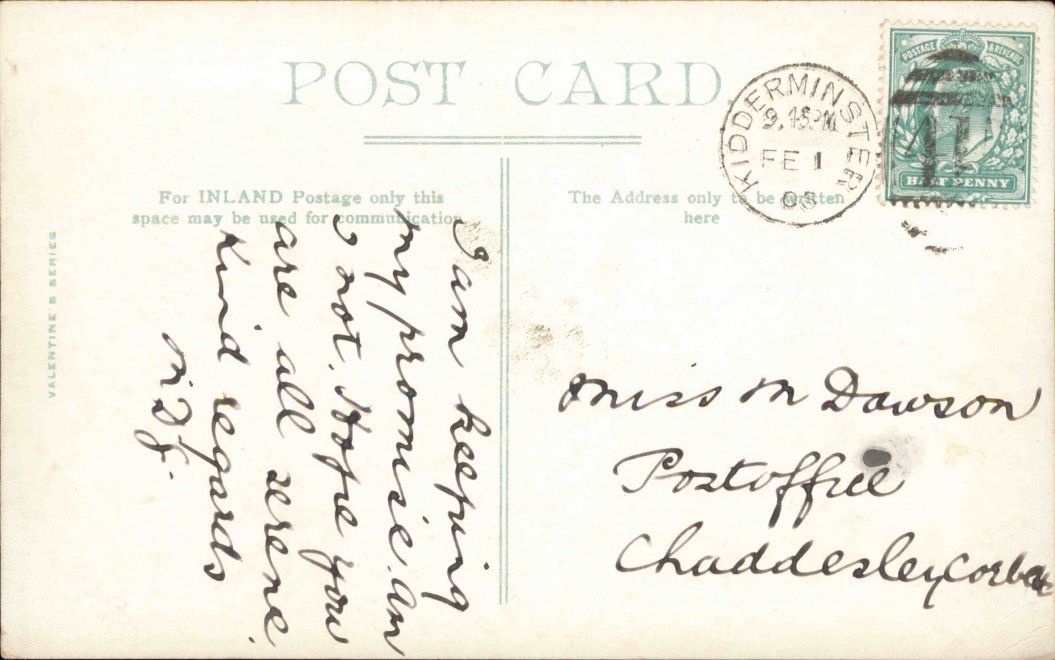 POST CARD
For INLAND Postage only this
space may be used for communication
The Address only to be written
here
VALENTINE'S SERIES
KIDDERMINSTER
9.45PM
FE 1
POSTAGE & REVENUE
HALF PENNY
I am keeping
my promise. Am
I not. Hope you
are all serene.
Kind regards
Miss M Dawson
Postoffice
Chaddesley Corbett